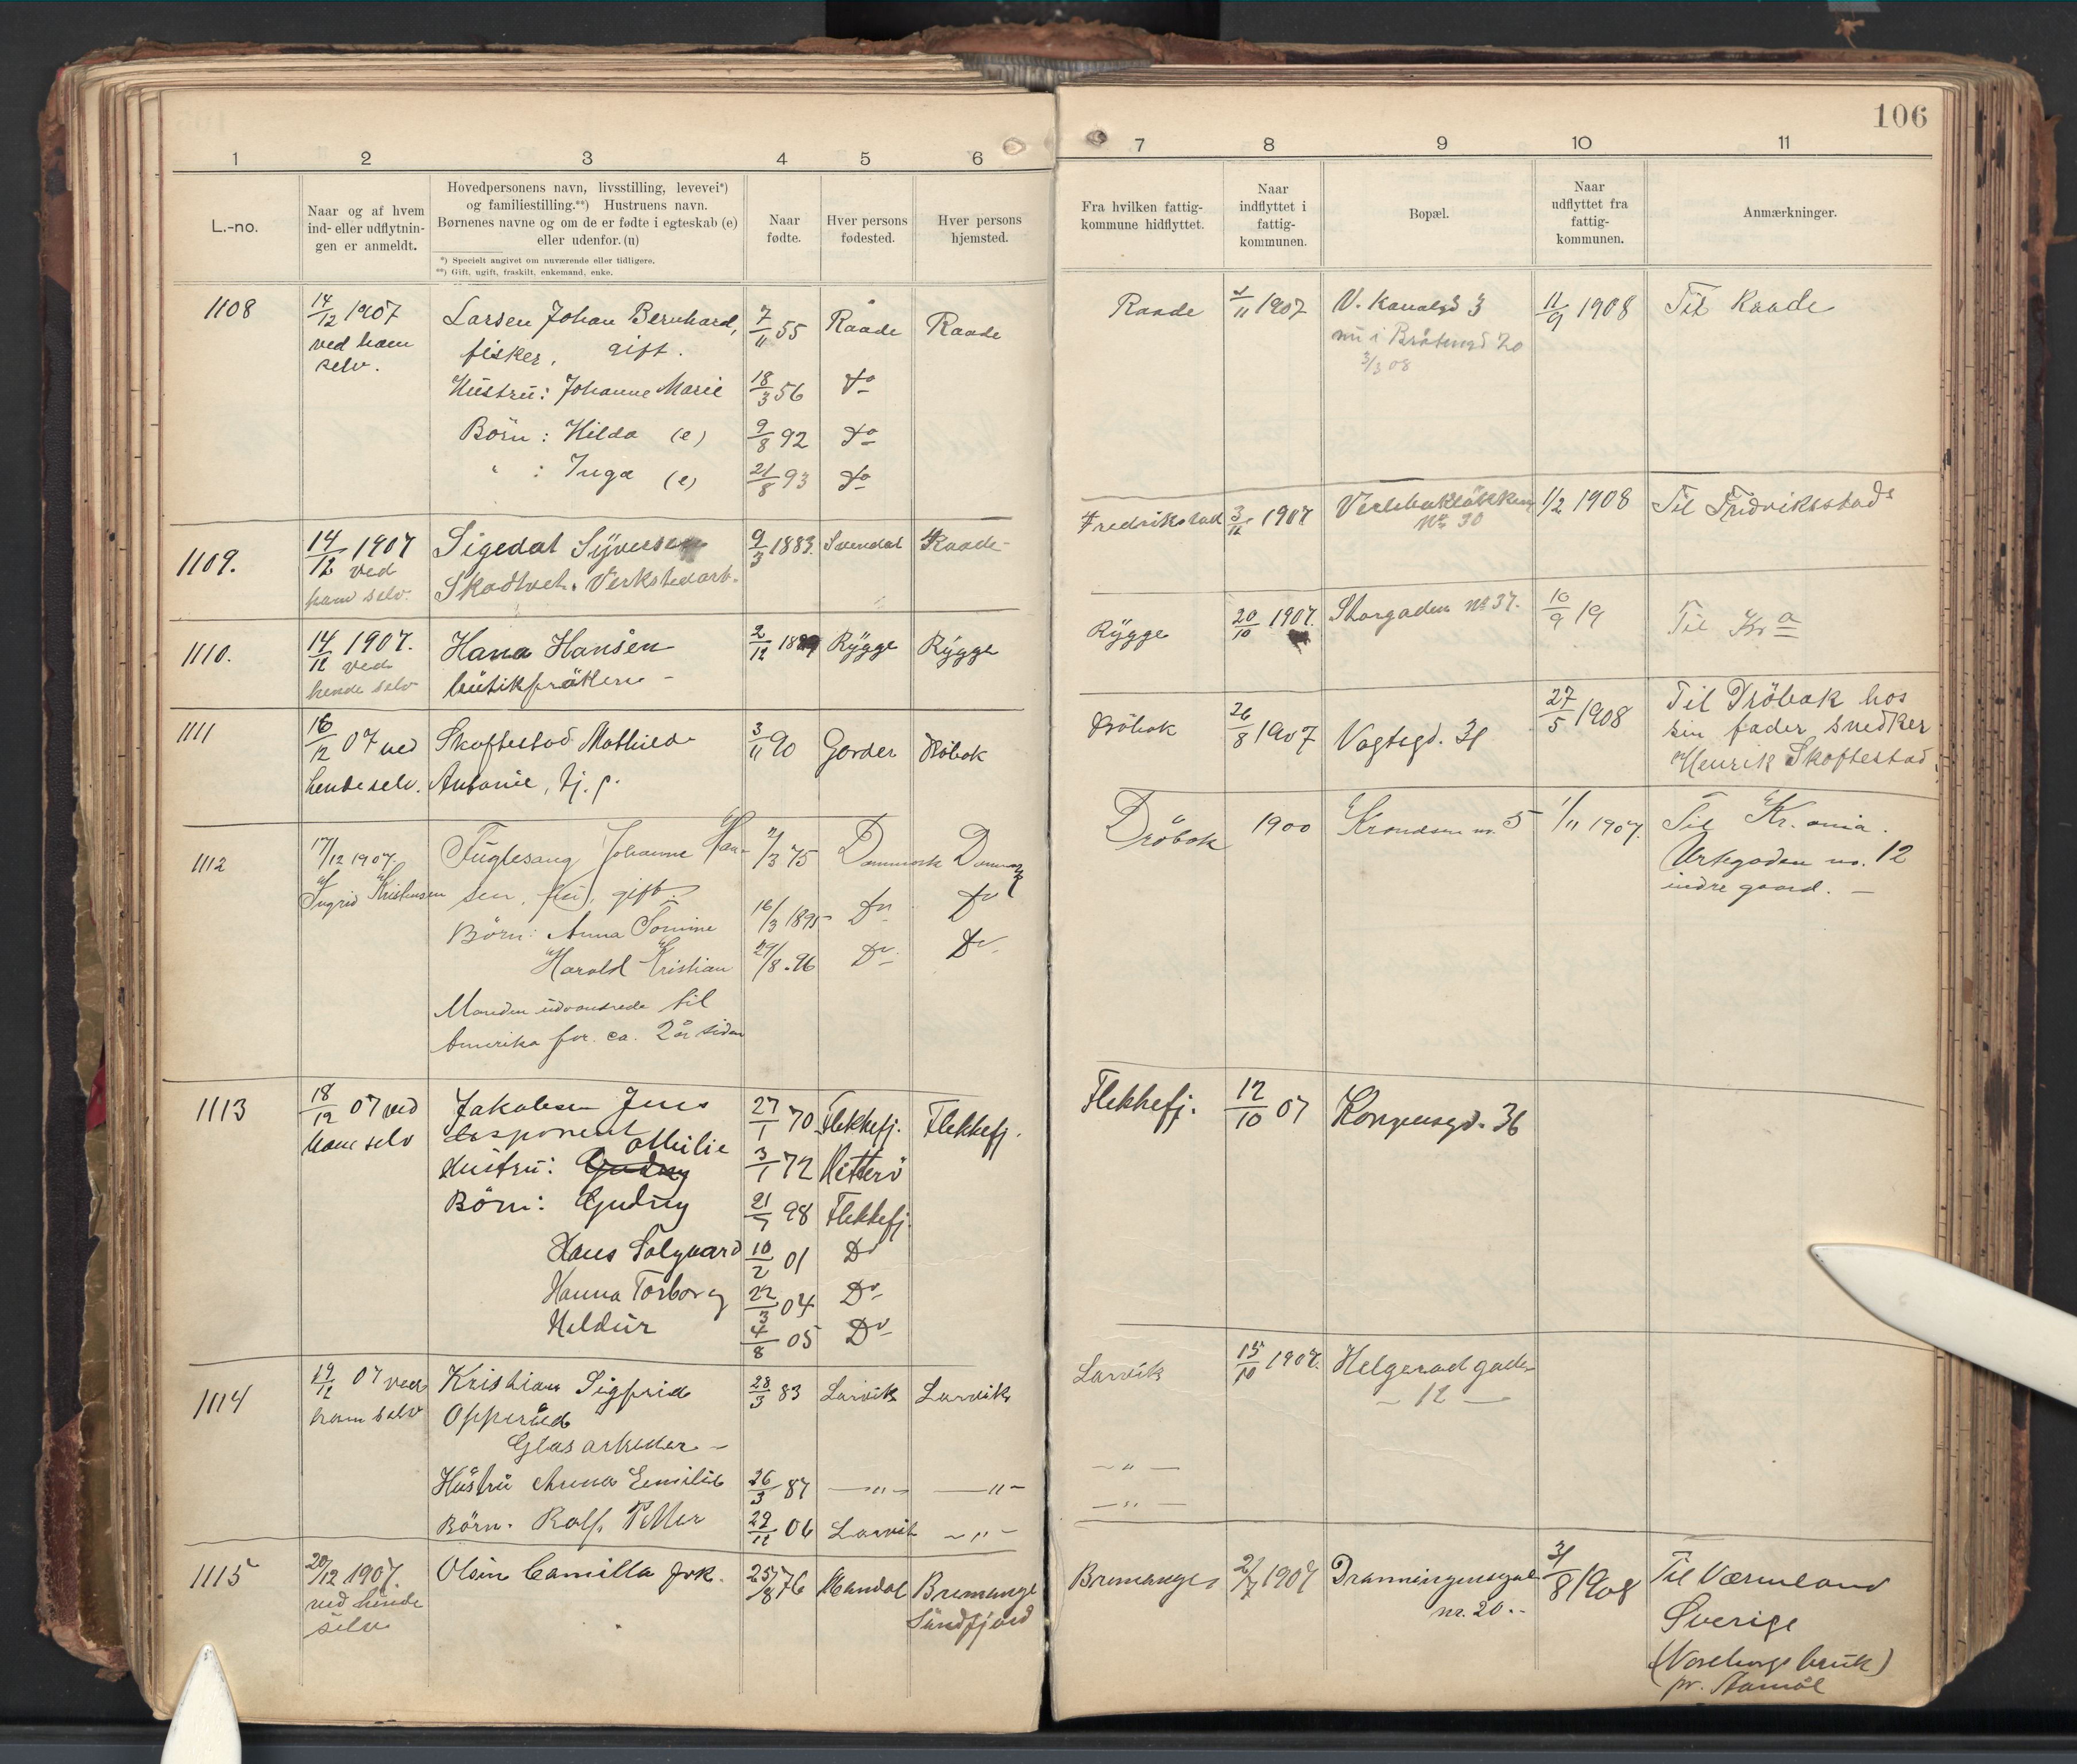 106
1 2 3 4 5 6 7 8 9 10 11
L.-no.
Naar og af hvem
ind- eller udflytnin-
gen er anmeldt.
Hovedpersonens navn, livsstilling, levevei*)
og familiestilling.**) Hustruens navn.
Børnenes navne og om de er fødte i egteskab (e)
eller udenfor. (u)
*) Specielt angivet om nuværende eller tidligere.
**) Gift, ugift, fraskilt, enkemand, enke.
Naar
fødte.
Hver persons
fødested.
Hver persons
hjemsted.
Fra hvilken fattig-
kommune hidflyttet.
Naar
indflyttet i
fattig-
kommunen.
Bopæl.
Naar
udflyttet fra
fattig-
kommunen.
Anmærkninger.
1108 14/12 1907 Larsen Johan Bernhard, 7/11 55 Raade Raade Raade /11 1907 V. Kanalgd 3 11/9 1908 Til Raade
ved ham fisker, gift. nu i Bråtengd 20
selv. 3/3 08
Hustru: Johanne Marie 18/3 56 do
Börn: Hilda (e) 9/8 92 do
" : Inga (e) 21/8 93 do
1109. 14/12 1907 Sigedal Syversen 9/3 1883. Svendal Raade Fredrikstad 3/12 1907 1/2 1908 Til Fredriksstad
ved Skadtvet. Verkstedarb. No 30
ham selv.
1110. 14/12 1907. Hana Hansen 2/12 Rygge Rygge Rygge 20/10 1907. Storgaden No 37. 10/9 19 Til Kra
ved butikfröken -
hende selv
1111 16/12 07 ved Skoftestad Mathilde 3/11 90 Garder Dröbak Dröbak 26/8 1907 Vogtsgd. 31 27/5 1908 Til Dröbak hos
hende selv. Antonie, tj. p. sin fader snedker
Henrik Skoftestad.
1112 17/12 1907. Fuglesang Johanne Han- /3 75 Danmark Danmark Dröbak 1900 no. 5 1/11 1907. Til Kr.ania.
af Ingrid Kristensen sen, gift. Urtegaden no. 12
indre gaard. -
Börn: Anna Tomine 16/3 1895 Do Do
Harald Kristian 29/8 . 96 Do Do
Manden udvandrede til
Amerika for ca. 2 år siden
1113 18/12 07 ved Jakobsen Jens 27/1 70 Flekkefj. Flekkefj. Flekkefj. 12/10 07 Kongensgd. 36
ham selv
Othilie
Hustru: Gudny 3/1 72 Hitterö
Börn: Gudny 21/7 98 Flekkefj.
Hans Solgaard 10/2 01 Do
Hanna Torborg 22/3 04 Do
Heldur 4/8 05 Do
1114 19/12 07 ved Kristian Sigfrid 28/3 83 Larvik Larvik Larvik 15/10 1907. Helgerødgaden
ham selv Opperud - 12 -
Glasarbeider -
Hustru Anna Emilie 26/3 87 - " - - " - - " -
Börn. Ralf Petter 29/11 06 Larvik - " - - " -
1115 20/12 1907. Olsen Camilla frk. 25/8 76 Mandal Bremanger Bremanger 1907 Dronningensgade 31/8 1908 Til Værmland
ved hende Søndfjord nr. 20. Sverige
selv (Noreborgs bruk)
pr. Åamål